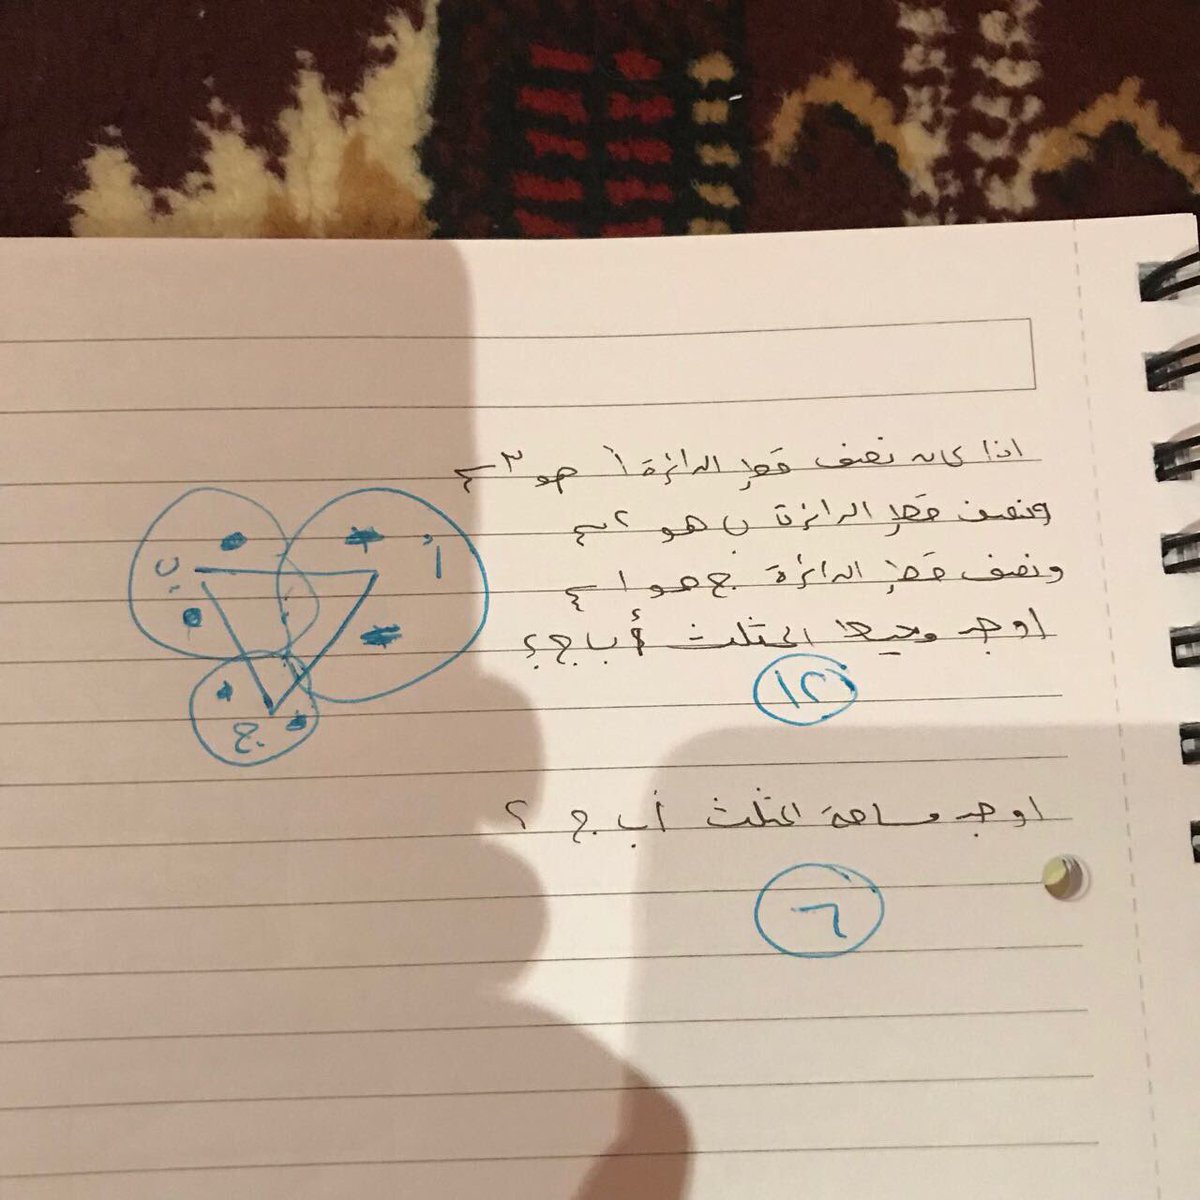 اذا كان نصف قطر الدائرة أ هو ٣ م
ونصف قطر الدائرة ب هو ٢ م
ونصف قطر الدائرة ج هو ١ م
اوجد محيط المثلث أ ب ج ؟
١٢
اوجد مساحة المثلث أ ب ج ؟
٦
أ
ب
ج